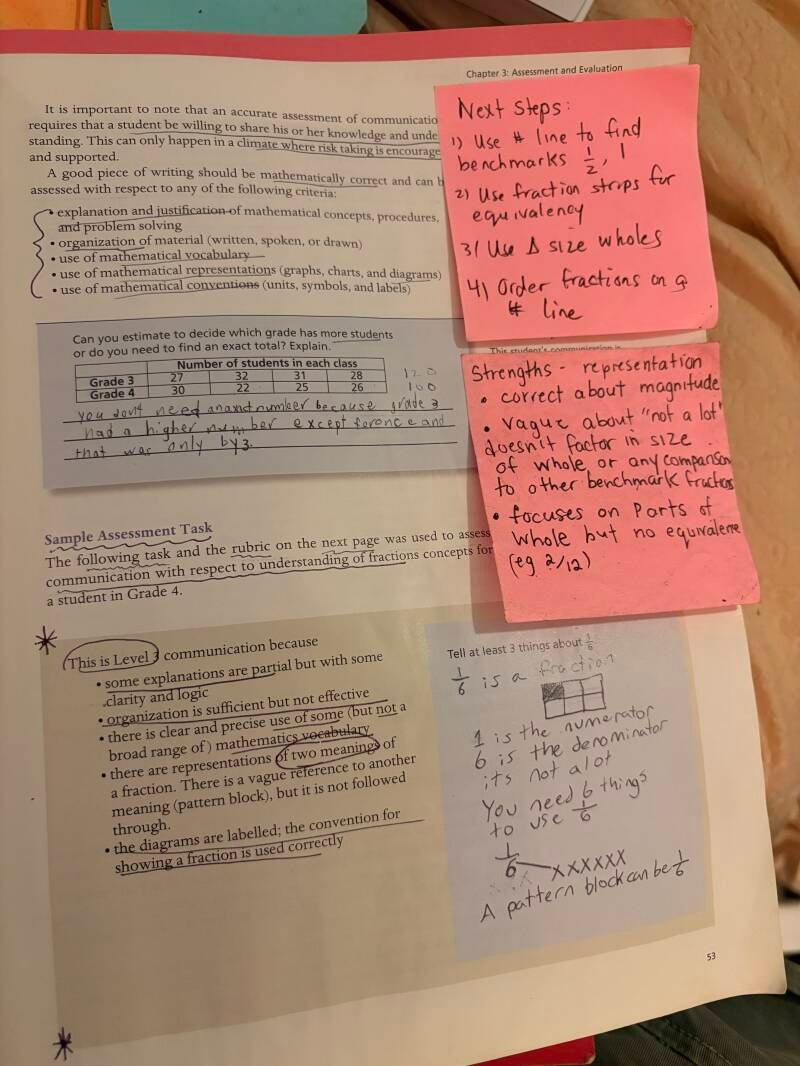 Chapter 3: Assessment and Evaluation
It is important to note that an accurate assessment of communicatio
requires that a student be willing to share his or her knowledge and unde
standing. This can only happen in a climate where risk taking is encourage
and supported.
A good piece of writing should be mathematically correct and can b
assessed with respect to any of the following criteria:
• explanation and justification of mathematical concepts, procedures,
and problem solving
• organization of material (written, spoken, or drawn)
• use of mathematical vocabulary
• use of mathematical representations (graphs, charts, and diagrams)
• use of mathematical conventions (units, symbols, and labels)
Next Steps:
1) Use # line to find
benchmarks 1/2, 1
2) Use fraction strips for
equivalency
3) Use Δ size wholes
4) Order fractions on a
# line
Can you estimate to decide which grade has more students
or do you need to find an exact total? Explain.
Number of students in each class
Grade 3 27 32 31 28 120
Grade 4 30 22 25 26 100
you dont need an exact number because grade 3
had a higher number except for once and
that was only by 3.
This student's communication is
Strengths - representation
• correct about magnitude
• vague about "not a lot"
doesn't factor in size
of whole or any comparison
to other benchmark fractions
• focuses on parts of
whole but no equivalence
(eg 2/12)
Sample Assessment Task
The following task and the rubric on the next page was used to assess
communication with respect to understanding of fractions concepts for
a student in Grade 4.
This is Level 3 communication because
• some explanations are partial but with some
clarity and logic
• organization is sufficient but not effective
• there is clear and precise use of some (but not a
broad range of) mathematics vocabulary
• there are representations of two meanings of
a fraction. There is a vague reference to another
meaning (pattern block), but it is not followed
through.
• the diagrams are labelled; the convention for
showing a fraction is used correctly
Tell at least 3 things about 1/6
1/6 is a fraction
1 is the numerator
6 is the denominator
its not alot
You need 6 things
to use 1/6
1/6 xxxxxx
A pattern block can be 1/6
53